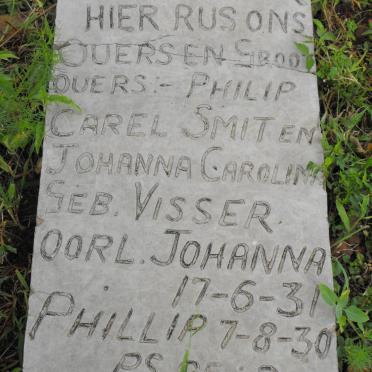 HIER RUS ONS
OUERS EN GROOT
OUERS:- PHILIP
CAREL SMIT EN
JOHANNA CAROLINA
GEB. VISSER.
OORL. JOHANNA
17-6-31
PHILLIP 7-8-30
PS.